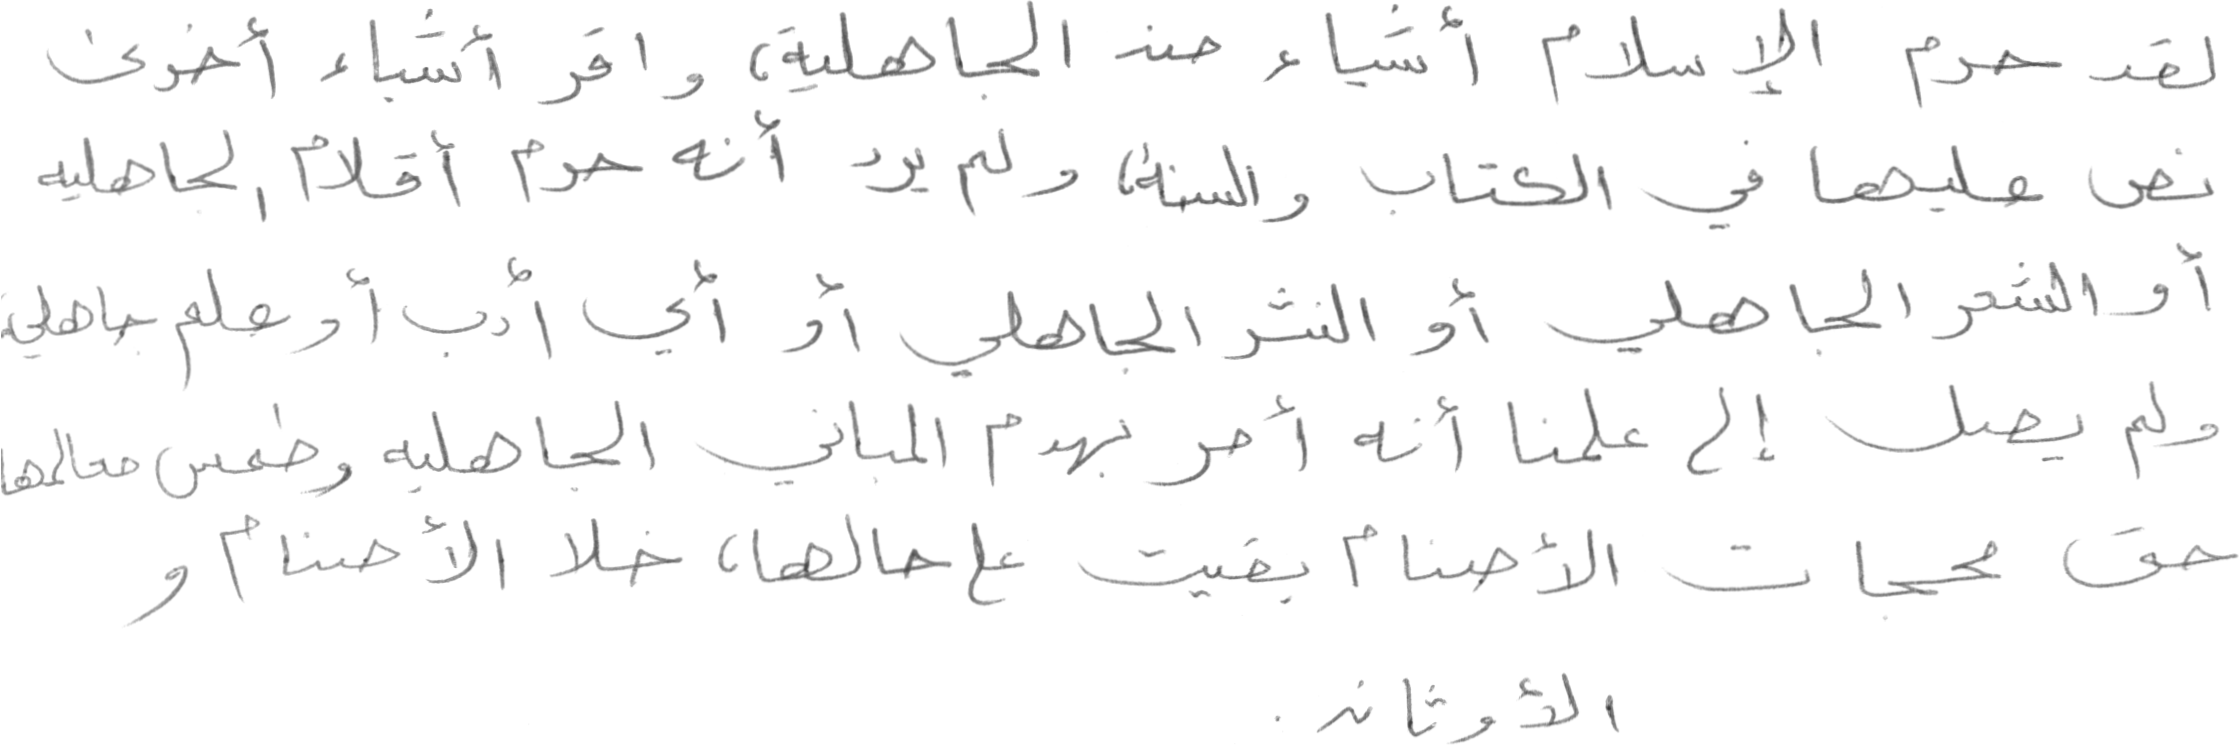 لقد حرم الإسلام أشياء من الجاهلية، واقر أشياء أخرى
نص عليها في الكتاب والسنة، ولم يرد أنه حرم أقلام الجاهليه
أو الشعر الجاهلي أو النثر الجاهلي أو أي أدب أو علم جاهلي
ولم يصل إلى علمنا أنه أمر بهدم المباني الجاهليه وطمس معالمها
حتى محجات الأصنام بقيت على حالها، خلا الأصنام و
الأوثان.